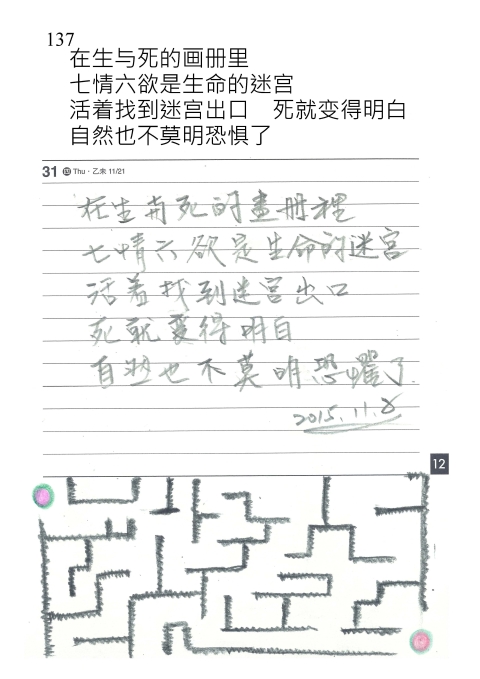 137
在生与死的画册里
七情六欲是生命的迷宫
活着找到迷宫出口　死就变得明白
自然也不莫明恐惧了
31 四 Thu · 乙未 11/21
在生与死的畫册裡
七情六欲是生命的迷宮
活着找到迷宮出口
死就变得明白
自然也不莫明恐懼了
2015.11.8
12